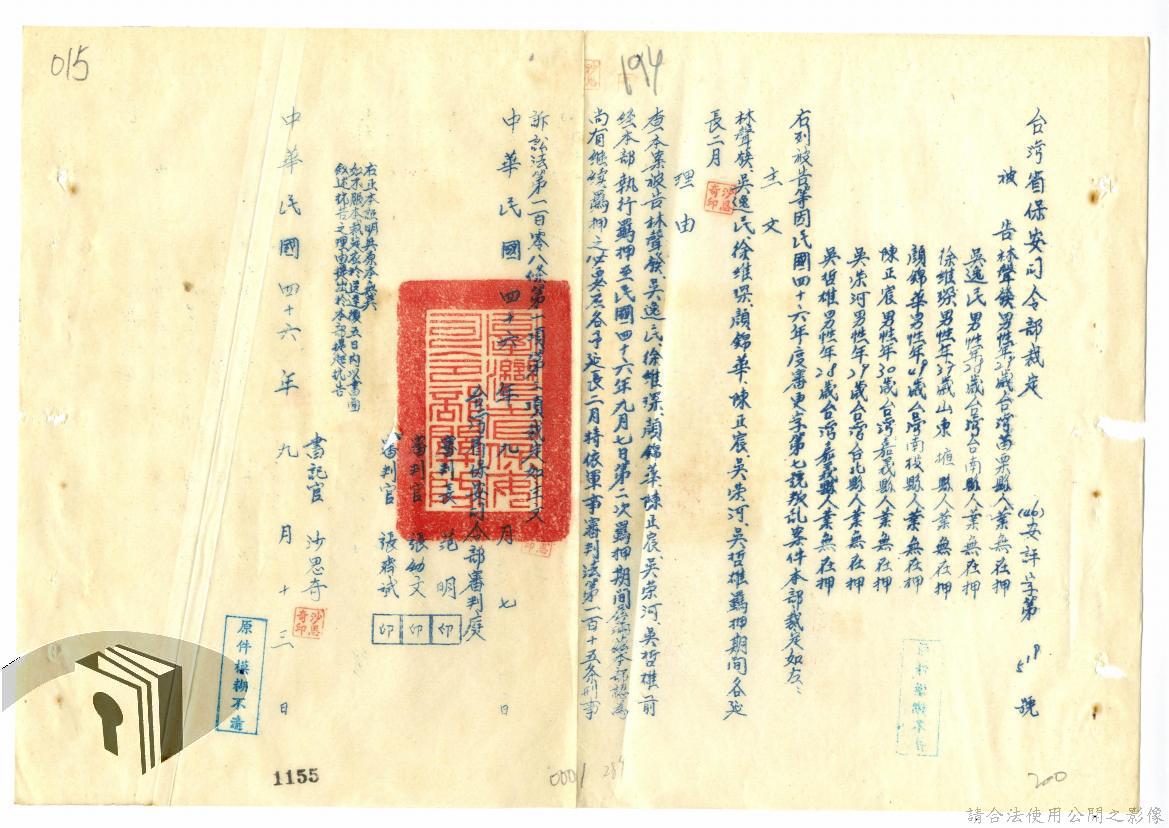 015
194
台湾省保安司令部裁定
(46)安評字第 號
被 告 林聲發男性年 歲台湾苗栗縣人業無在押
吳逸民男性年 歲台湾台南縣人業無在押
徐維琛男性年 歲山東 縣人業無在押
顏錦華男性年 歲台湾南投縣人業無在押
陳正宸男性年30歲台湾嘉義縣人業無在押
吳崇河男性年29歲台湾台北縣人業無在押
吳哲雄男性年28歲台湾嘉義縣人業無在押
右列被告等因民國四十六年度審更字第七號叛乱案件本部裁定如左:
主文
林聲發吳逸民徐維琛顏錦華陳正宸吳崇河吳哲雄羈押期间各延
長二月
理由
查本案被告林聲發吳逸民徐維琛顏錦華陳正宸吳崇河吳哲雄前
經本部執行羈押至民國四十六年九月七日第二次羈押期間 本部認為
尚有継续羈押之必要應各予延長二月特依軍事審判法第一百十五条刑事
訴訟法第一百零八條第一項第二項裁定如主文
中華民國四十六年九月七日
台湾省保安司令部審判庭
審判長 范明 印
審判官 張幼文 印
審判官 張 斌 印
右正本證明與原本無異
如不服本裁定應於送達後五日内以書面
敘述抗告之理由提出於本部提起抗告
書記官 沙思奇
沙思奇印
中華民國四十六年九月十三日
原件模糊不清
1155
0001
284
200
請合法使用公開之影像